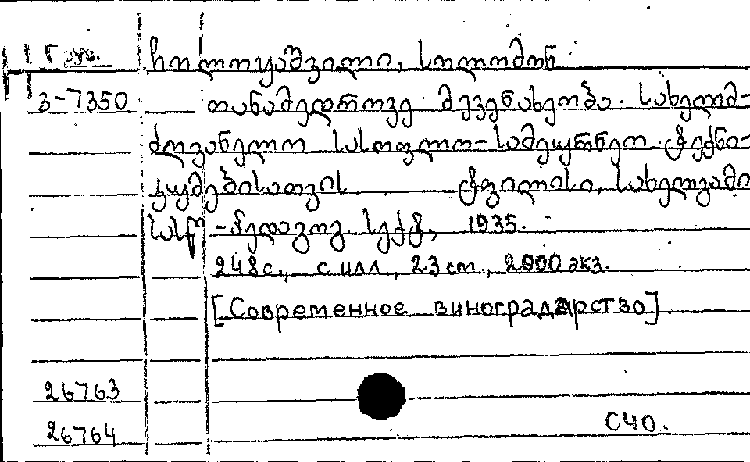 ჩოლოყაშვილი, სოლომონ
3-7350 თანამედროვე მევენახეობა. სახელმ-
ძღვანელო სასოფლო-სამეურნეო ტექნი-
კუმებისათვის ტფილისი, სახელგამი
სას. -პედაგოგ. სექტ., 1935.
248 с., с илл, 23 cm., 2000 экз.
[Современное виноградарство]
26763
26764 СЧО.